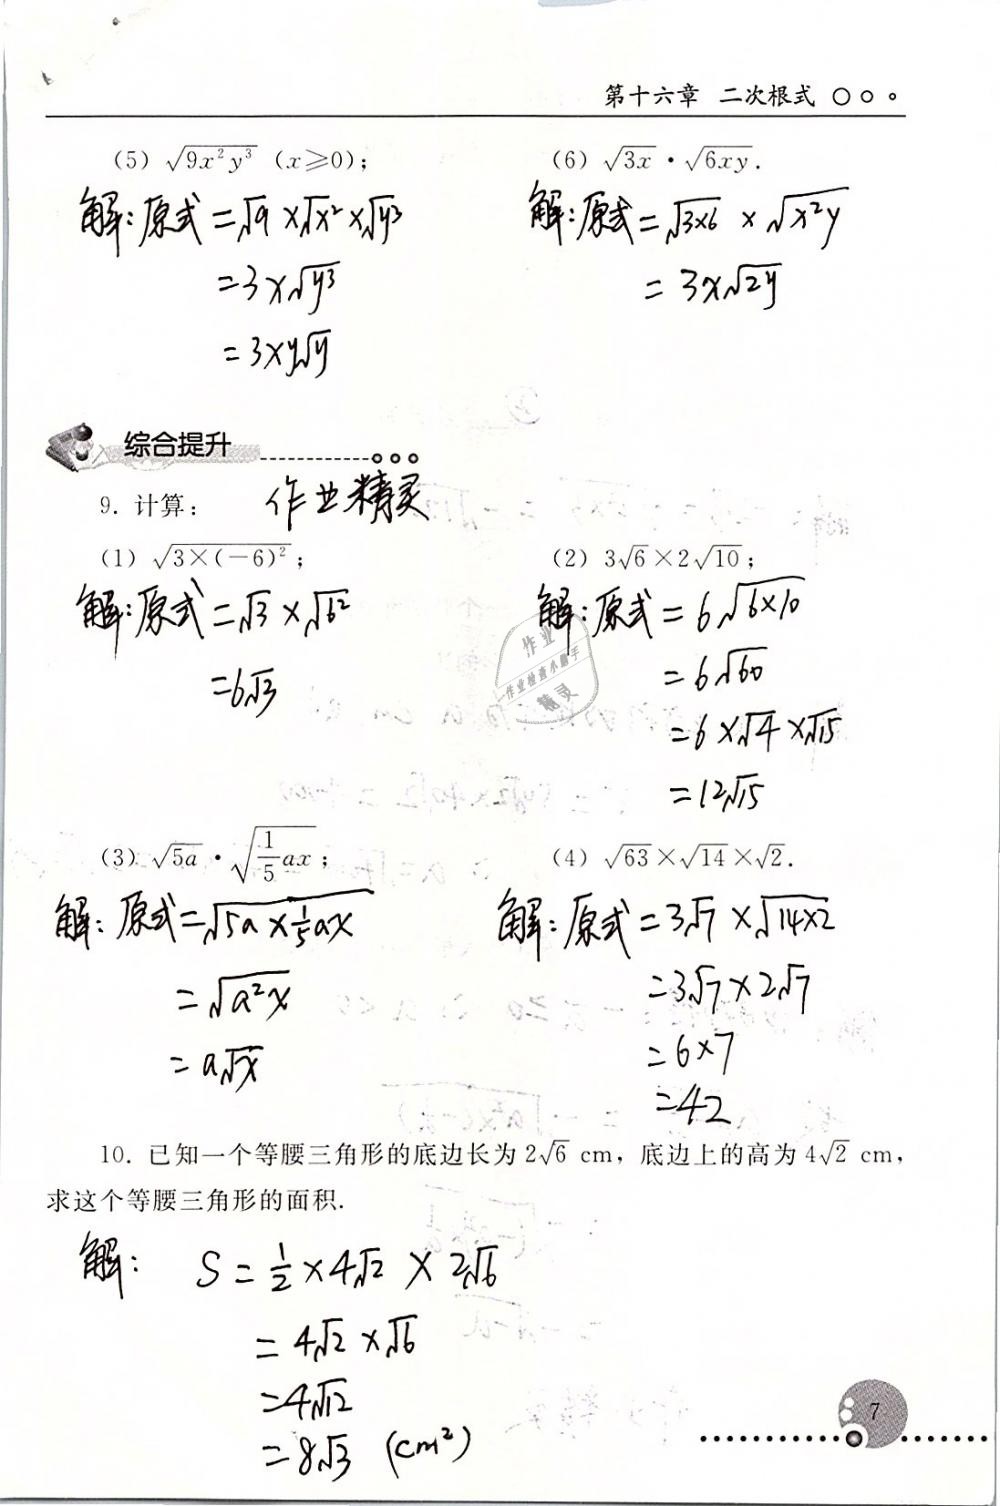 第十六章 二次根式
(5) √(9x²y³) (x≥0);
(6) √(3x)·√(6xy).
解:原式=√9×√x²×√y³
=3x√y³
=3xy√y
解:原式=√(3×6)×√(x²y)
=3x√(2y)
综合提升
9. 计算:
作业精灵
(1) √(3×(-6)²);
(2) 3√6×2√10;
解:原式=√3×√6²
=6√3
解:原式=6√(6×10)
=6√60
=6×√4×√15
=12√15
作业
作业检查小助手
精灵
(3) √(5a)·√(1/5 ax);
(4) √63×√14×√2.
解:原式=√(5a×1/5 ax)
=√(a²x)
=a√x
解:原式=3√7×√(14×2)
=3√7×2√7
=6×7
=42
10. 已知一个等腰三角形的底边长为2√6 cm,底边上的高为4√2 cm,
求这个等腰三角形的面积.
解: S=1/2×4√2×2√6
=4√2×√6
=4√12
=8√3 (cm²)
7